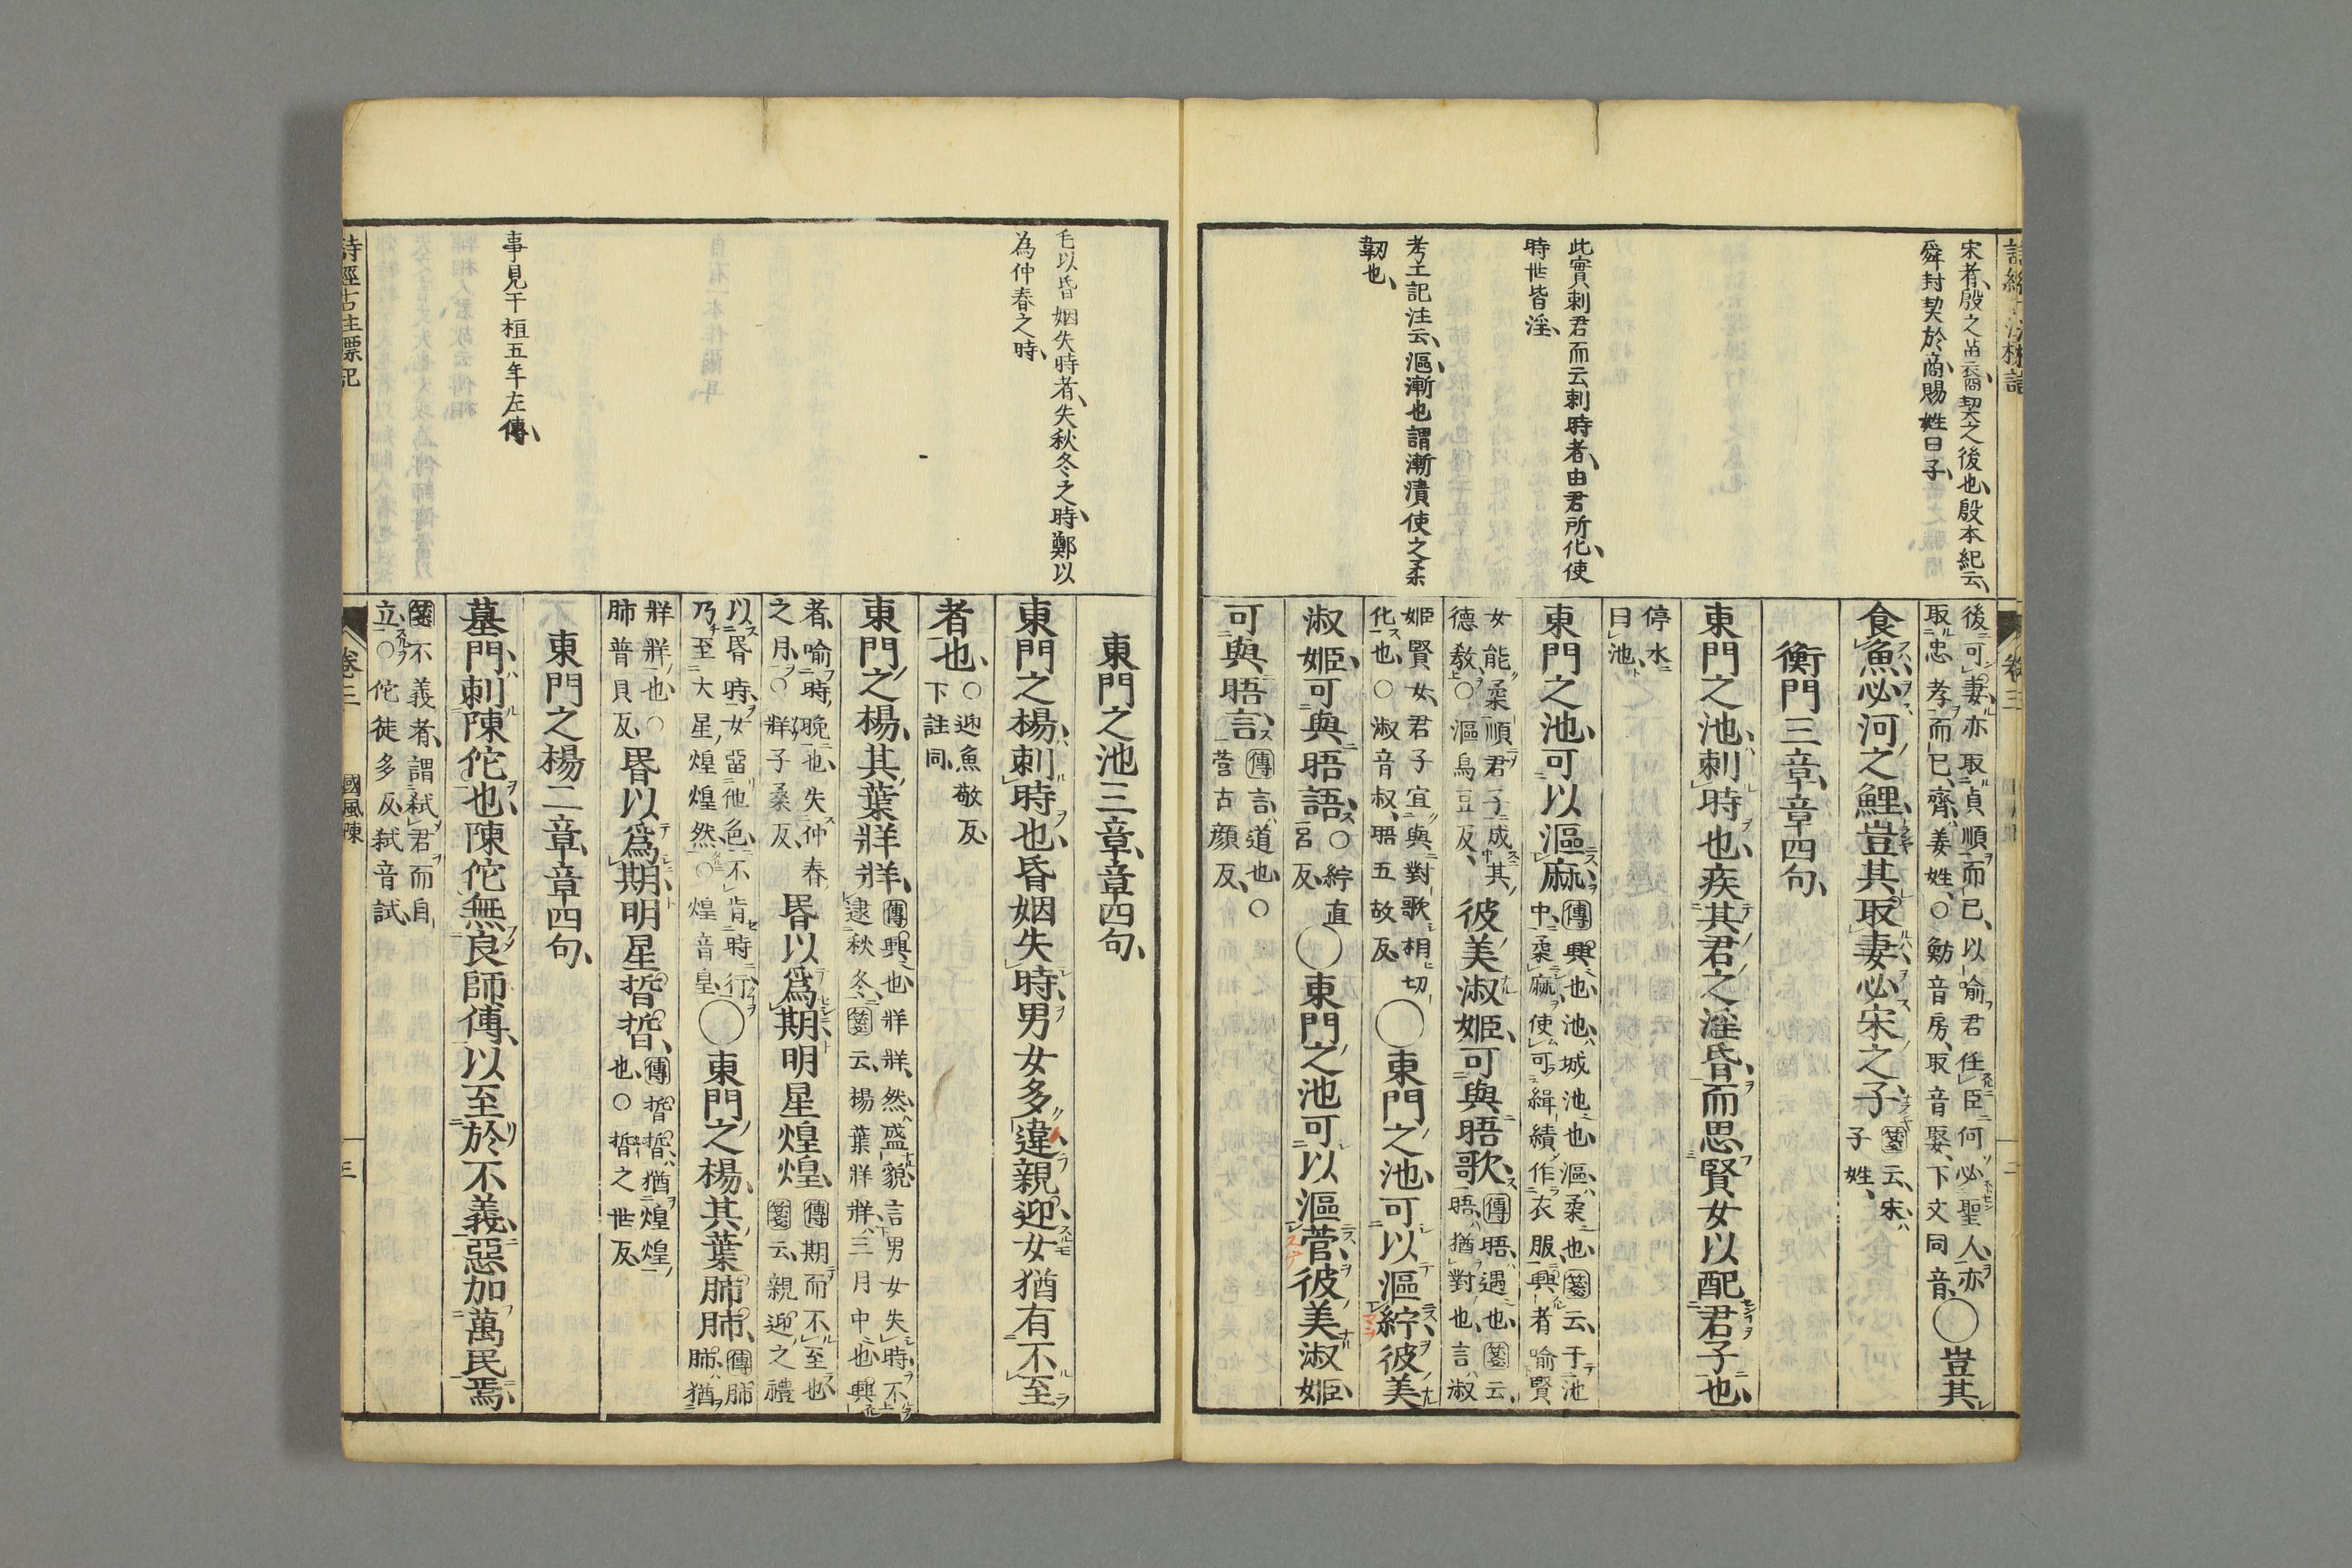 宋者殷之苗裔契之後也殷本紀云
舜封契於商賜姓曰子
此實刺君而云刺時者由君所化使
時世皆淫
考工記注云漚漸也謂漸漬使之柔
韌也
後可妻亦取貞順而已以喻君任臣何必聖人亦
取忠孝而已齊姜姓○魴音房取音娶下文同音○豈其
食魚必河之鯉豈其取妻必宋之子箋云宋
子姓
衡門三章章四句
東門之池刺時也疾其君之淫昏而思賢女以配君子也
停水
曰池
東門之池可以漚麻傳興也池城池也漚柔也箋云于池
中柔麻使可緝績作衣服興者喻賢
女能柔順君子成其
德教○漚烏豆反彼美淑姬可與晤歌傳晤遇也箋云
晤猶對也言淑
姬賢女君子宜與對歌相切
化也○淑音叔晤五故反○東門之池可以漚紵彼美
淑姬可與晤語○紵直
呂反○東門之池可以漚菅彼美淑姬
可與晤言傳言道也○
菅古顔反
毛以昏姻失時者失秋冬之時鄭以
為仲春之時
事見于桓五年左傳
東門之池三章章四句
東門之楊刺時也昏姻失時男女多違親迎女猶有不至
者也○迎魚敬反
下註同
東門之楊其葉牂牂傳興也牂牂然盛貌言男女失時不
逮秋冬箋云楊葉牂牂三月中也興
者喻時晚也失仲春
之月○牂子桑反昬以爲期明星煌煌傳期而不至也
箋云親迎之禮
以昬時女留他色不肯時行
乃至大星煌煌然○煌音皇○東門之楊其葉肺肺傳肺
肺猶
牂牂也○
肺普貝反昬以爲期明星晢晢傳晢晢猶煌煌
也○晢之世反
東門之楊二章章四句
墓門刺陳佗也陳佗無良師傅以至於不義惡加萬民焉
箋不義者謂弑君而自
立○佗徒多反弑音試
詩經古注標記
卷三
國風陳
三